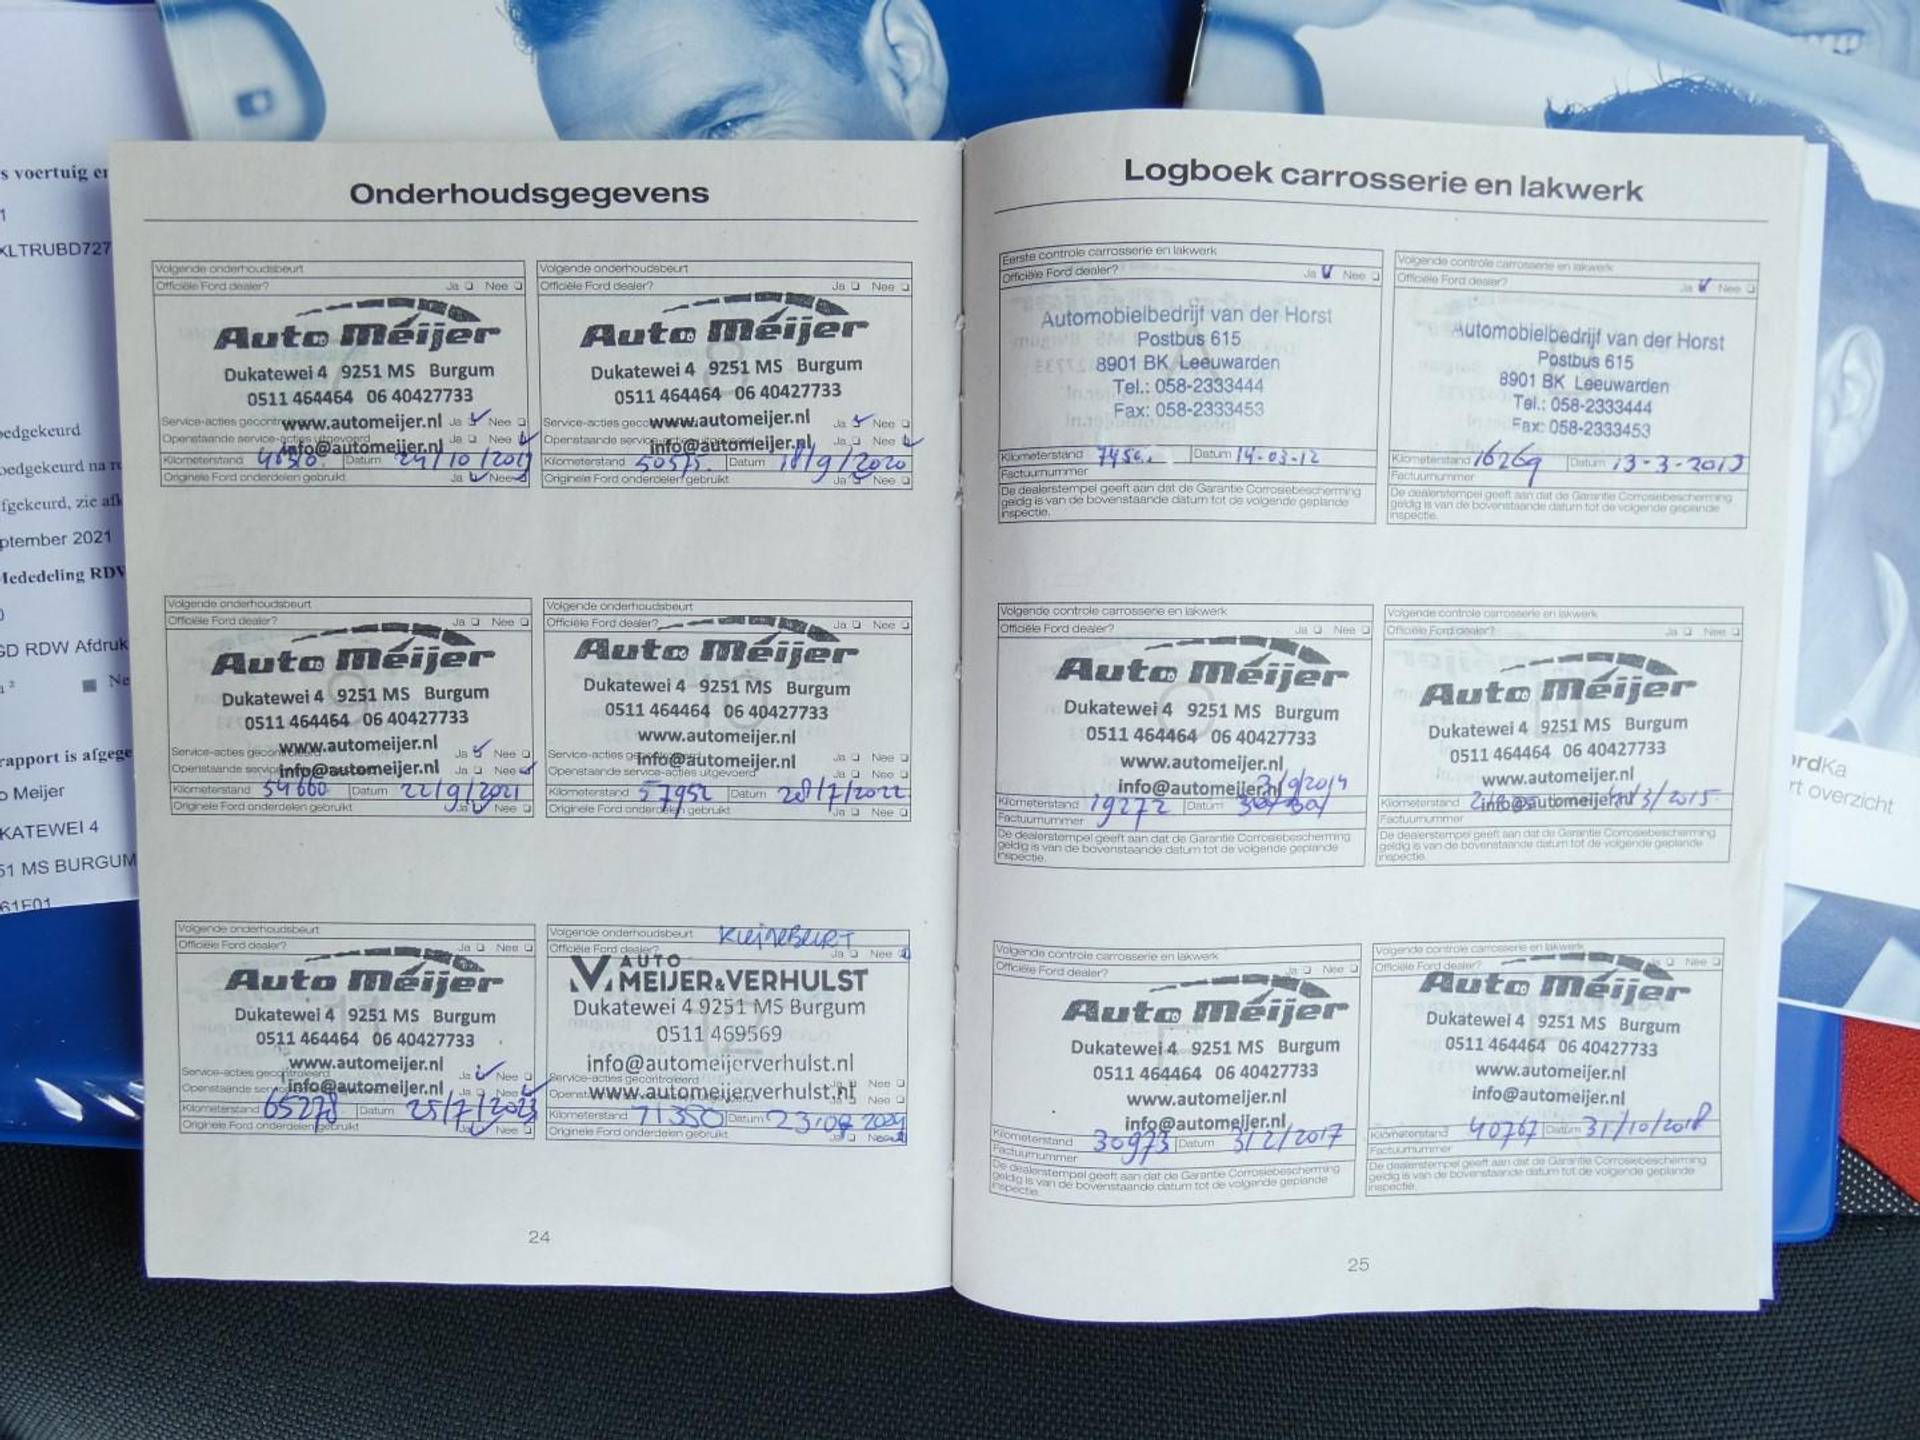 s voertuig er
1
KLTRUBD727
oedgekeurd
oedgekeurd na
fgekeurd, zie
ptember 2021
Mededeling RDW
GD RDW Afdruk
Ne
rapport is afgege
o Meijer
KATEWEI 4
51 MS BURGUM
61F01
Onderhoudsgegevens
Volgende onderhoudsbeurt
Officiële Ford dealer? Ja Nee
Auto Meijer
Dukatewei 4 9251 MS Burgum
0511 464464 06 40427733
www.automeijer.nl
Service-acties Ja Nee
info@automeijer.nl
Openstaande service-acties uitgevoerd Ja Nee
Kilometerstand Datum 24/10/
Originele Ford onderdelen gebruikt Ja Nee
Volgende onderhoudsbeurt
Officiële Ford dealer? Ja Nee
Auto Meijer
Dukatewei 4 9251 MS Burgum
0511 464464 06 40427733
www.automeijer.nl
Service-acties Ja Nee
info@automeijer.nl
Openstaande Ja Nee
Kilometerstand 50575 Datum 18/9/2020
Originele Ford onderdelen gebruikt Ja Nee
Volgende onderhoudsbeurt
Officiële Ford dealer? Ja Nee
Auto Meijer
Dukatewei 4 9251 MS Burgum
0511 464464 06 40427733
www.automeijer.nl
Service-acties Ja Nee
info@automeijer.nl
Openstaande Ja Nee
Kilometerstand 54660 Datum 22/9/2021
Originele Ford onderdelen gebruikt Ja Nee
Volgende onderhoudsbeurt
Officiële Ford dealer? Ja Nee
Auto Meijer
Dukatewei 4 9251 MS Burgum
0511 464464 06 40427733
www.automeijer.nl
Service-acties Ja Nee
info@automeijer.nl
Openstaande service-acties uitgevoerd Ja Nee
Kilometerstand 57952 Datum 28/7/2022
Originele Ford onderdelen gebruikt Ja Nee
Volgende onderhoudsbeurt
Officiële Ford dealer? Ja Nee
Auto Meijer
Dukatewei 4 9251 MS Burgum
0511 464464 06 40427733
www.automeijer.nl
Service-acties gecontroleerd Ja Nee
info@automeijer.nl
Openstaande Ja Nee
Kilometerstand 65278 Datum 25/7/2023
Originele Ford onderdelen gebruikt Nee
Volgende onderhoudsbeurt KleineBeurt
Officiële Ford dealer? Ja Nee
AUTO
MEIJER&VERHULST
Dukatewei 4 9251 MS Burgum
0511 469569
info@automeijerverhulst.nl
Service-acties gecontroleerd Nee
www.automeijerverhulst.nl
Nee
Kilometerstand 71350 Datum 2024
Originele Ford onderdelen gebruikt Ja Nee
24
Logboek carrosserie en lakwerk
Eerste controle carrosserie en lakwerk
Officiële Ford dealer? Ja Nee
Automobielbedrijf van der Horst
Postbus 615
8901 BK Leeuwarden
Tel.: 058-2333444
Fax: 058-2333453
Kilometerstand Datum 14-03-12
Factuurnummer
De dealerstempel geeft aan dat de Garantie Corrosiebescherming
geldig is van de bovenstaande datum tot de volgende geplande
inspectie.
Volgende controle carrosserie en lakwerk
Officiële Ford dealer? Ja Nee
Automobielbedrijf van der Horst
Postbus 615
8901 BK Leeuwarden
Tel.: 058-2333444
Fax: 058-2333453
Kilometerstand 16269 Datum 13-3-2013
Factuurnummer
De dealerstempel geeft aan dat de Garantie Corrosiebescherming
geldig is van de bovenstaande datum tot de volgende geplande
inspectie.
Volgende controle carrosserie en lakwerk
Officiële Ford dealer? Ja Nee
Auto Meijer
Dukatewei 4 9251 MS Burgum
0511 464464 06 40427733
www.automeijer.nl
info@automeijer.nl 3/9/2014
Kilometerstand 19272 Datum
Factuurnummer
De dealerstempel geeft aan dat de Garantie Corrosiebescherming
geldig is van de bovenstaande datum tot de volgende geplande
inspectie.
Volgende controle carrosserie en lakwerk
Officiële Ford dealer? Ja Nee
Auto Meijer
Dukatewei 4 9251 MS Burgum
0511 464464 06 40427733
www.automeijer.nl
info@automeijer.nl
Kilometerstand
Factuurnummer
De dealerstempel geeft aan dat de Garantie Corrosiebescherming
geldig is van de bovenstaande datum tot de volgende geplande
inspectie.
Volgende controle carrosserie en lakwerk
Officiële Ford dealer? Ja Nee
Auto Meijer
Dukatewei 4 9251 MS Burgum
0511 464464 06 40427733
www.automeijer.nl
info@automeijer.nl
Kilometerstand 30973 Datum 3/2/2017
Factuurnummer
De dealerstempel geeft aan dat de Garantie Corrosiebescherming
geldig is van de bovenstaande datum tot de volgende geplande
inspectie.
Volgende controle carrosserie en lakwerk
Officiële Ford dealer? Nee
Auto Meijer
Dukatewei 4 9251 MS Burgum
0511 464464 06 40427733
www.automeijer.nl
info@automeijer.nl
Kilometerstand 40767 Datum 31/10/2018
Factuurnummer
De dealerstempel geeft aan dat de Garantie Corrosiebescherming
geldig is van de bovenstaande datum tot de volgende geplande
inspectie.
25
ordKa
rt overzicht